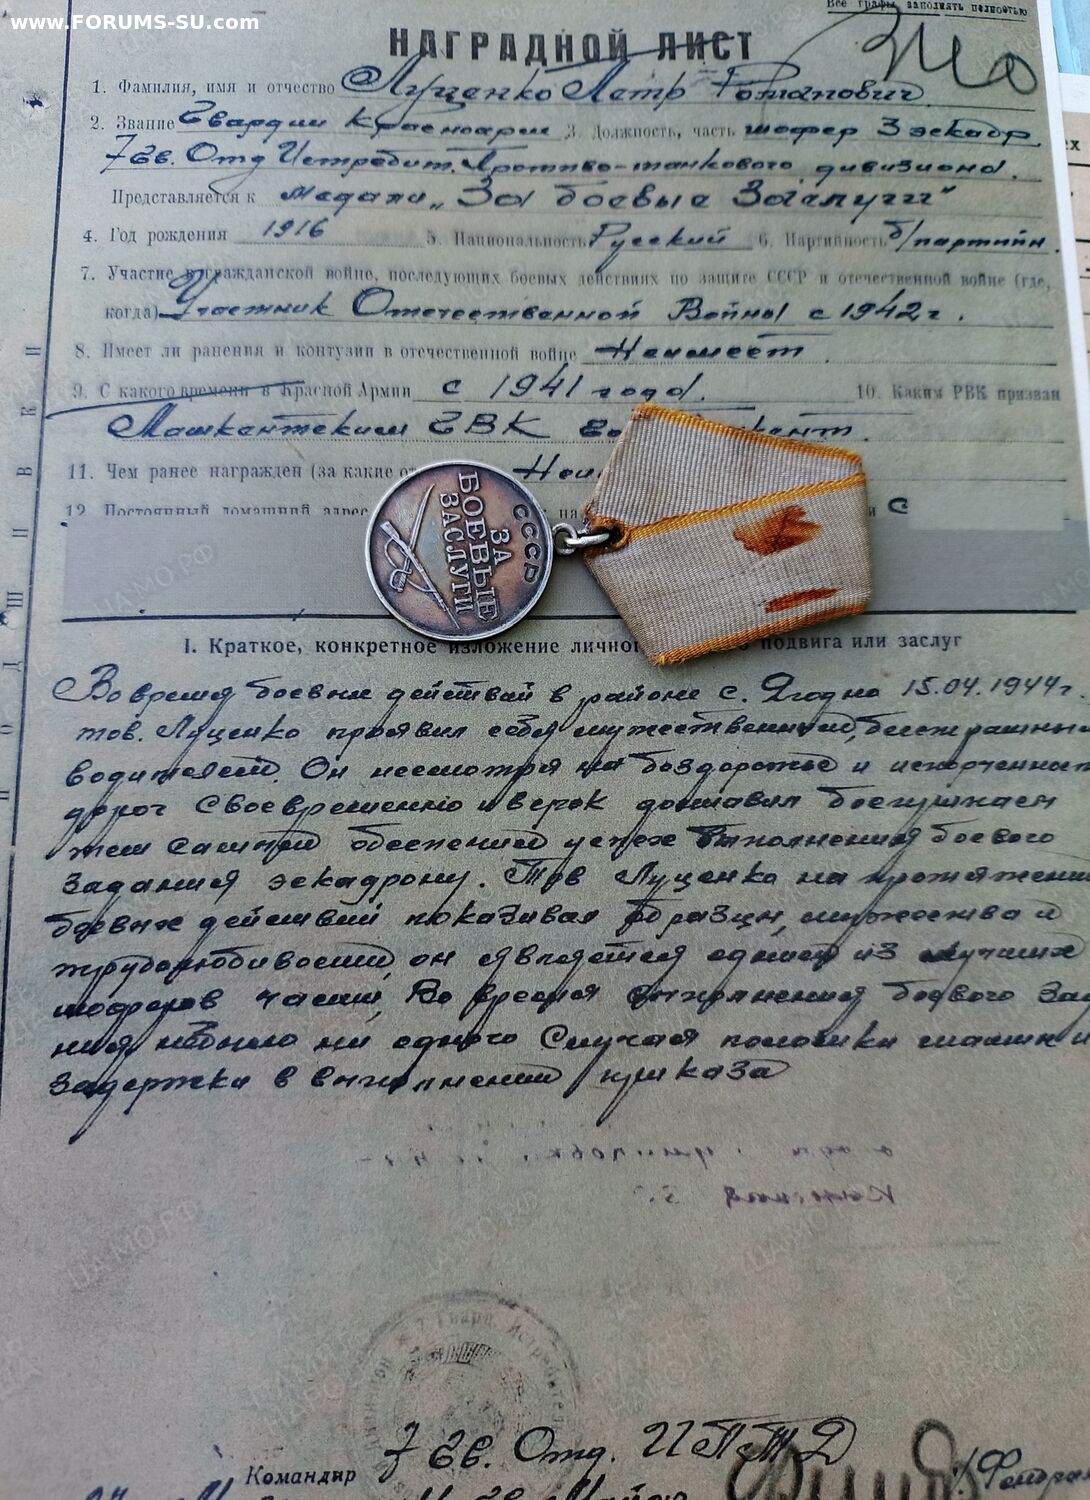 www.FORUMS-SU.com
Все графы заполнять полностью
НАГРАДНОЙ ЛИСТ
1. Фамилия, имя и отчество Луценко Петр Романович
2. Звание Гвардии Красноарм 3. Должность, часть шофер 3 эскадр.
7 Гв. Отд Истребит. Противо-танкового дивизиона.
Представляется к медали „За боевые Заслуги"
4. Год рождения 1916 5. Национальность Русский 6. Партийность б/партийн.
7. Участие в гражданской войне, последующих боевых действиях по защите СССР и отечественной войне (где,
когда) Участник Отечественной Войны с 1942 г.
8. Имеет ли ранения и контузии в отечественной войне Неимеет
9. С какого времени в Красной Армии с 1941 года. 10. Каким РВК призван
Ташкентским ГВК
11. Чем ранее награжден (за какие
12. Постоянный домашний адрес
СССР
ЗА
БОЕВЫЕ
ЗАСЛУГИ
I. Краткое, конкретное изложение личного подвига или заслуг
Во время боевых действий в районе с. Ягодно 15.04.1944 г.
тов. Луценко проявил себя мужественным, бесстрашным
водителем. Он несмотря на боздорожье и
дорог своевременно доставлял
тем самым успех выполнения боевого
задания эскадрону. Тов Луценко на протяжении
боевых действий показывал образцы мужества и
трудолюбивости, он является одним из лучших
шоферов части, Во время выполнения боевого зад
ния небыло ни одного случая поломки машин и
задержки в выполнении приказа
Командир 7 Гв. Отд. ИПТД
Гв. Майор
ЦАМО.РФ